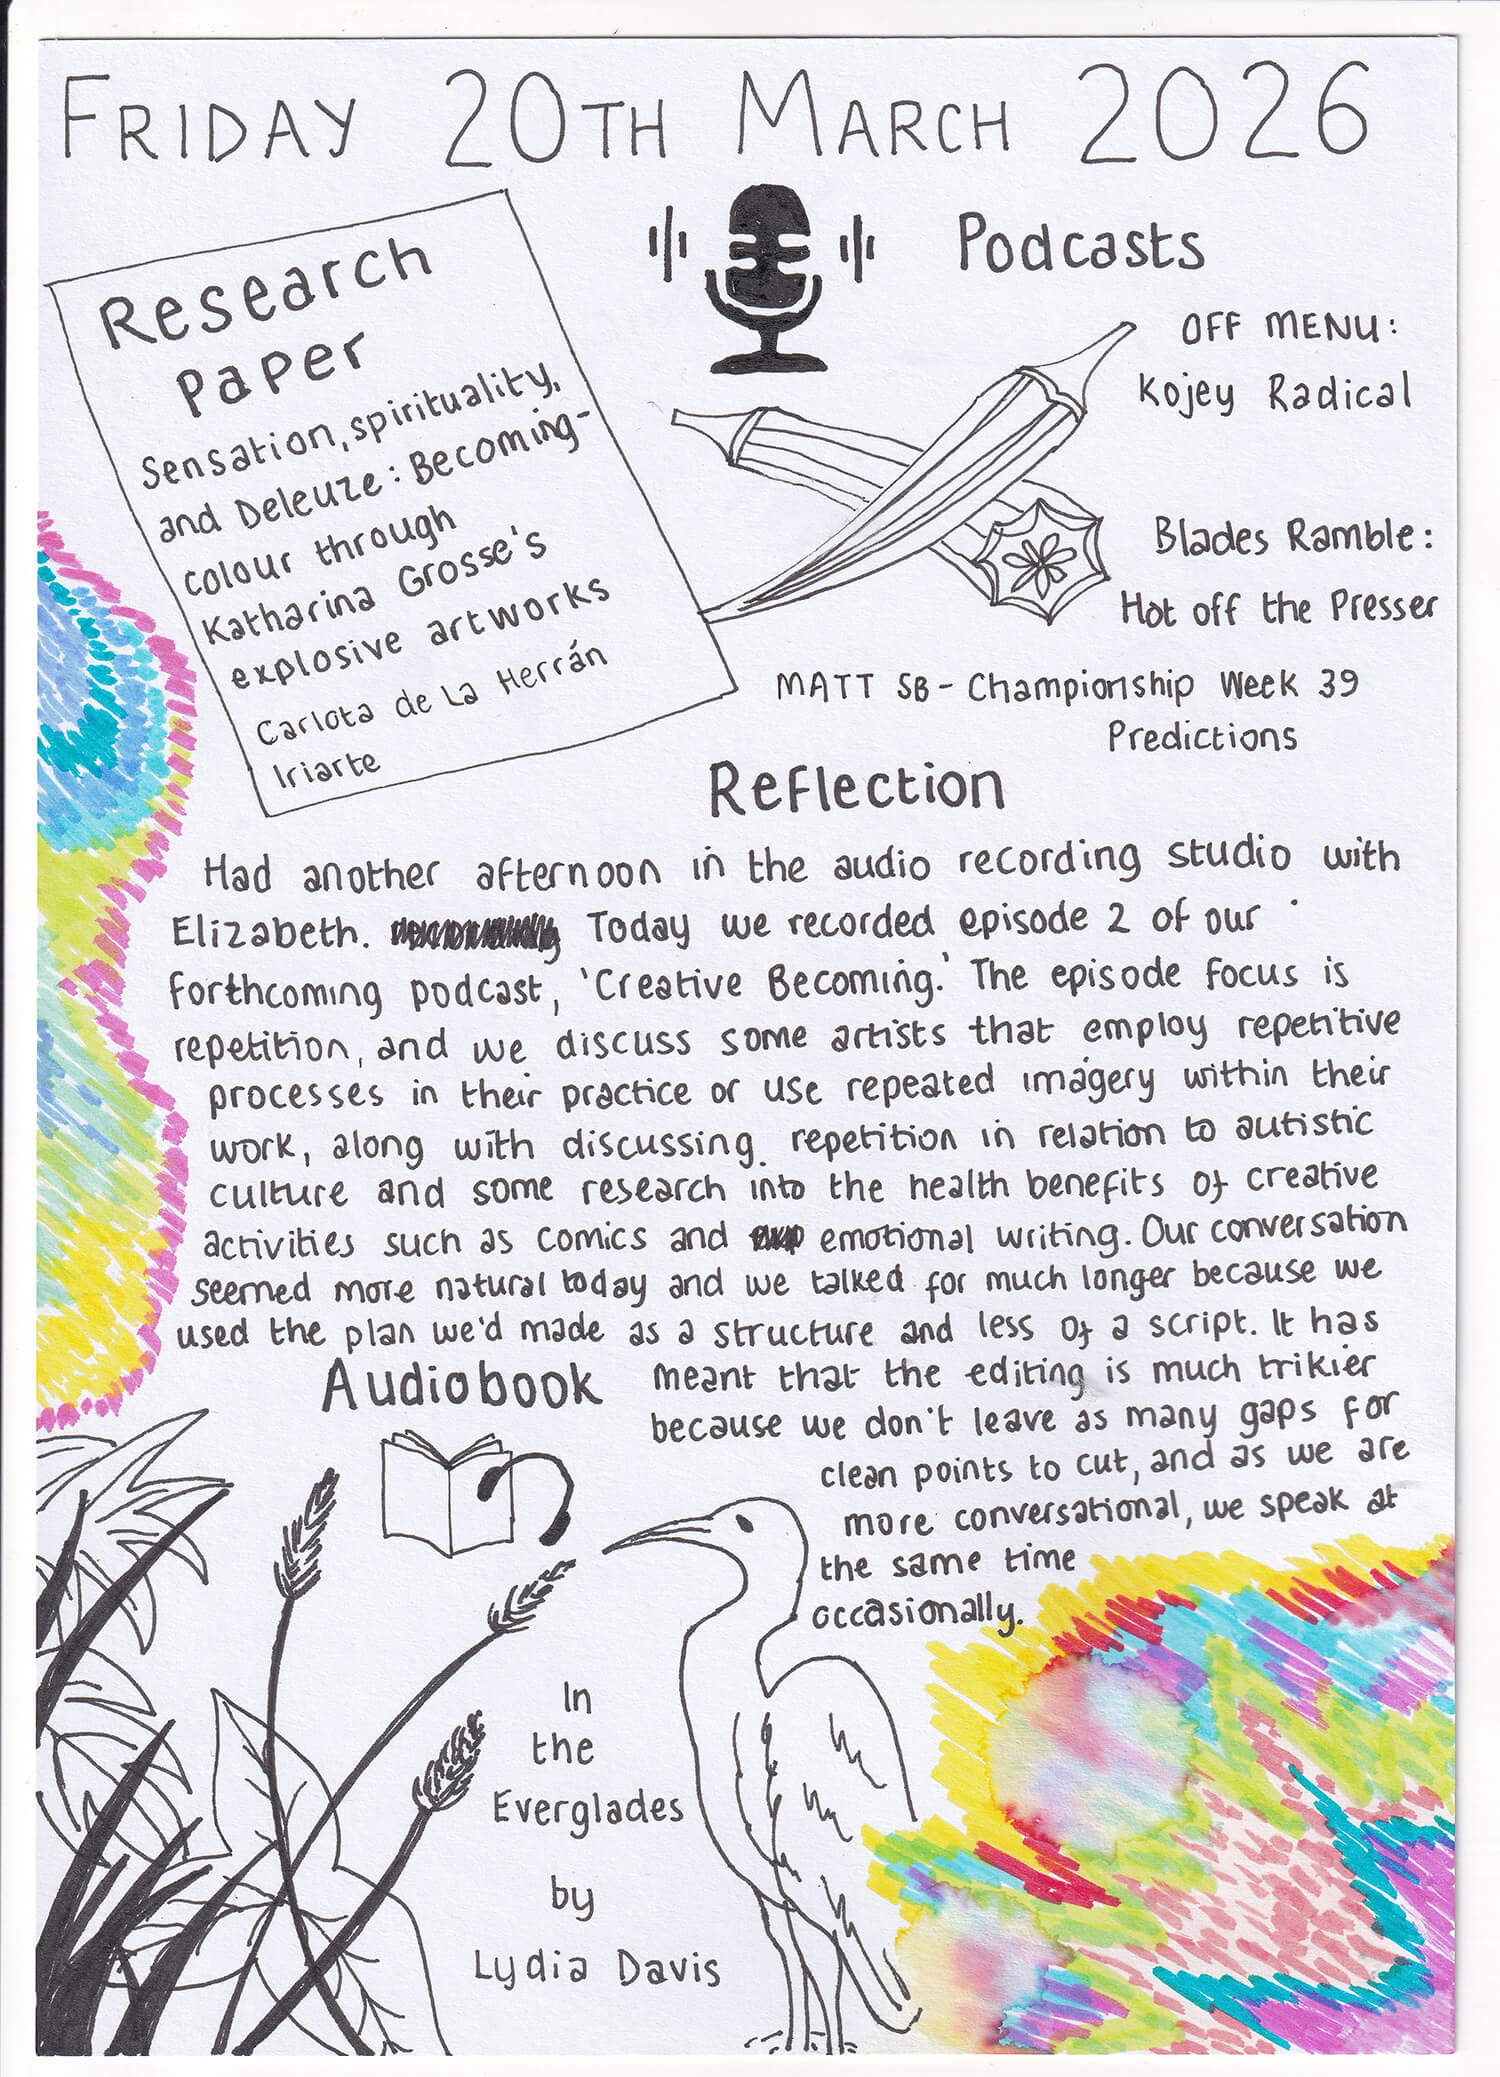 FRIDAY 20TH MARCH 2026
Research
Paper
Sensation, spirituality,
and Deleuze: Becoming-
colour through
Katharina Grosse's
explosive artworks
Carlota de La Herrán
Iriarte
Podcasts
OFF MENU:
Kojey Radical
Blades Ramble:
Hot off the Presser
MATT SB - Championship Week 39
Predictions
Reflection
Had another afternoon in the audio recording studio with
Elizabeth. Today we recorded episode 2 of our
forthcoming podcast, 'Creative Becoming.' The episode focus is
repetition, and we discuss some artists that employ repetitive
processes in their practice or use repeated imagery within their
work, along with discussing repetition in relation to autistic
culture and some research into the health benefits of creative
activities such as comics and emotional writing. Our conversation
seemed more natural today and we talked for much longer because we
used the plan we'd made as a structure and less of a script. It has
meant that the editing is much trikier
because we don't leave as many gaps for
clean points to cut, and as we are
more conversational, we speak at
the same time
occasionally.
Audiobook
In
the
Everglades
by
Lydia Davis